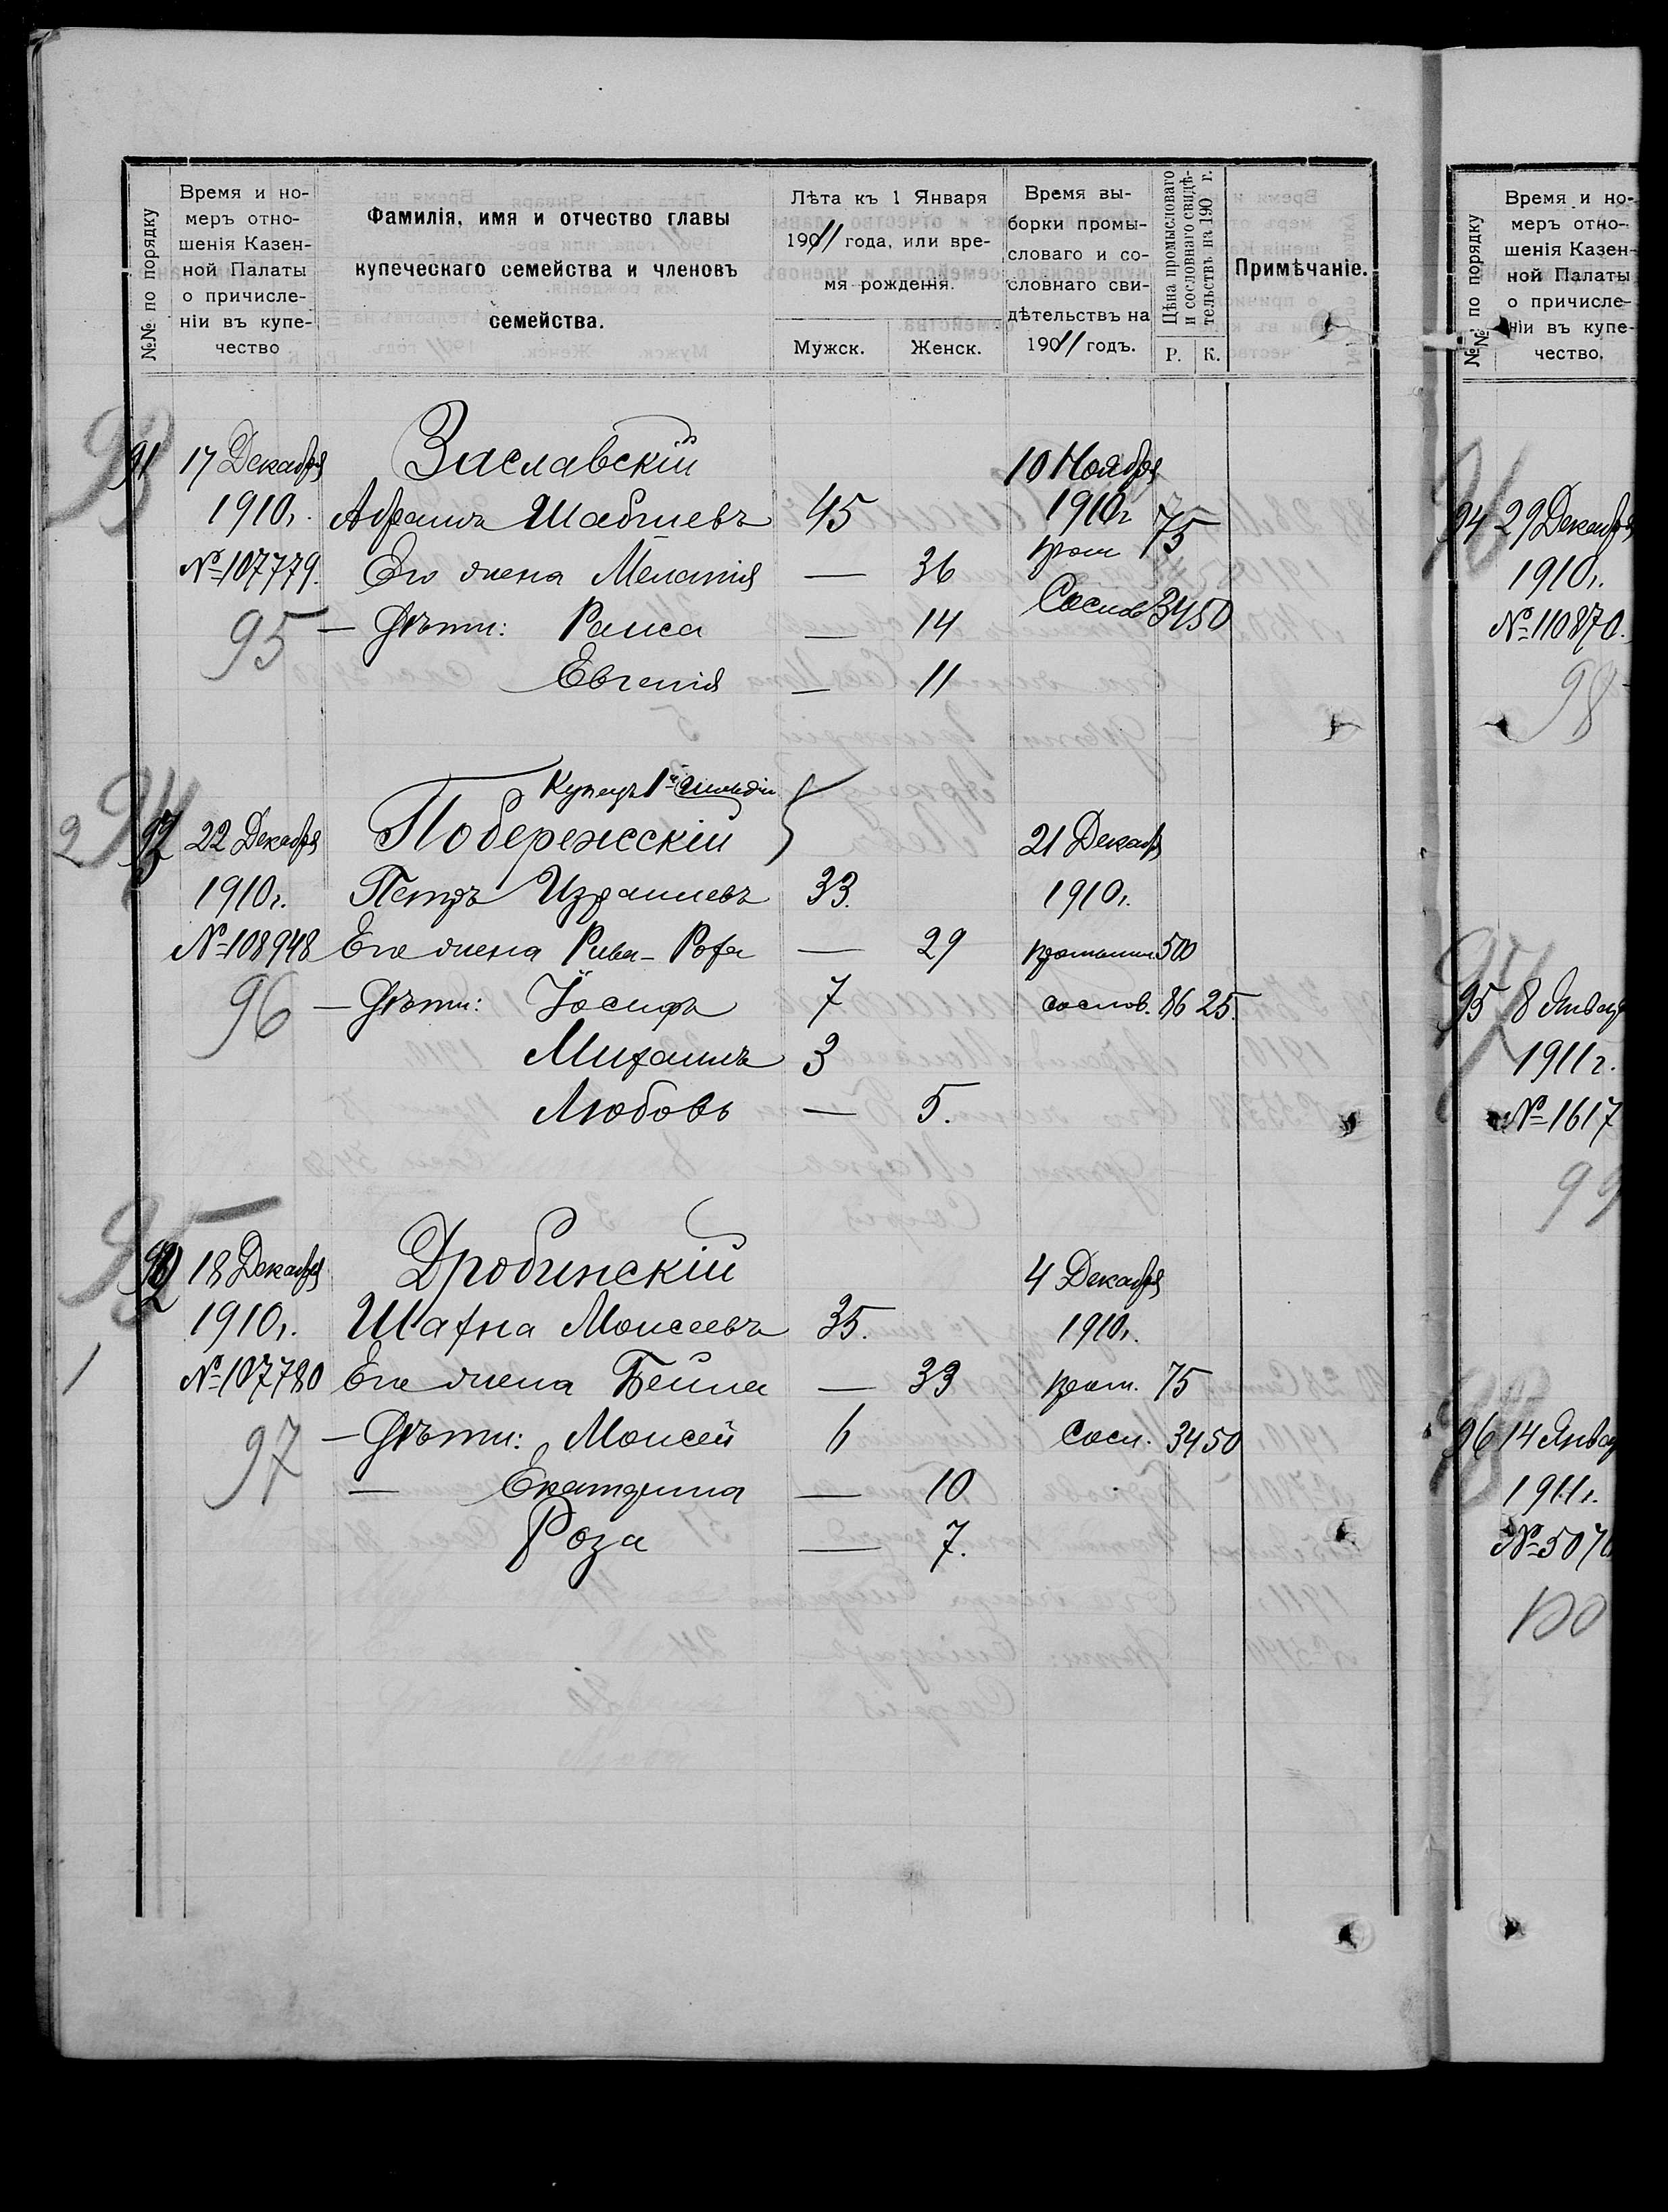 №№ по порядку
Время и но-
меръ отно-
шенія Казен-
ной Палаты
о причисле-
ніи въ купе-
чество
Фамилія, имя и отчество главы
купеческаго семейства и членовъ
семейства.
Лѣта къ 1 Января
1911 года, или вре-
мя рожденія.
Мужск. Женск.
Время вы-
борки промы-
словаго и со-
словнаго сви-
дѣтельствъ на
1911 годъ.
Цѣна промысловаго
и сословнаго свидѣ-
тельствъ на 190 г.
Р. К.
Примѣчаніе.
93
91 17 Декабря Заславскій 10 Ноября
1910г. Абрамъ Шабшевъ 45 1910г
№107779. Его жена Меланія — 36 пром 75
95 — Дѣти: Раиса — 14 Сослов 34 50
Евгенія — 11
94
Купецъ 1й гильдіи
2 22 Декабря Побережсскій 21 Декабр
1910г. Петръ Израилевъ 33. 1910г.
№108948 Его жена Рива-Роза — 29 промысл 500
96 — Дѣти: Іосифъ 7 сослов. 86 25.
Михаилъ 3
Любовь — 5.
95
18 Декабря Дробинскій 4 Декабря
1910г. Шахна Моисеевъ 35. 1910г.
1 №107780 Его жена Бейла — 33 пром. 75
97 — Дѣти: Моисей 6 Сосл. 34 50
— Екатерина — 10
Роза — 7.
№№ по порядку
Время и но-
меръ отно-
шенія Казен-
ной Палаты
о причисле-
ніи въ купе-
чество.
96
94 29 Декабря
1910г.
№110870.
98
97
95 8 Январ
1911г.
№1617
99
98
96 14 Январ
1911г.
№5070
100